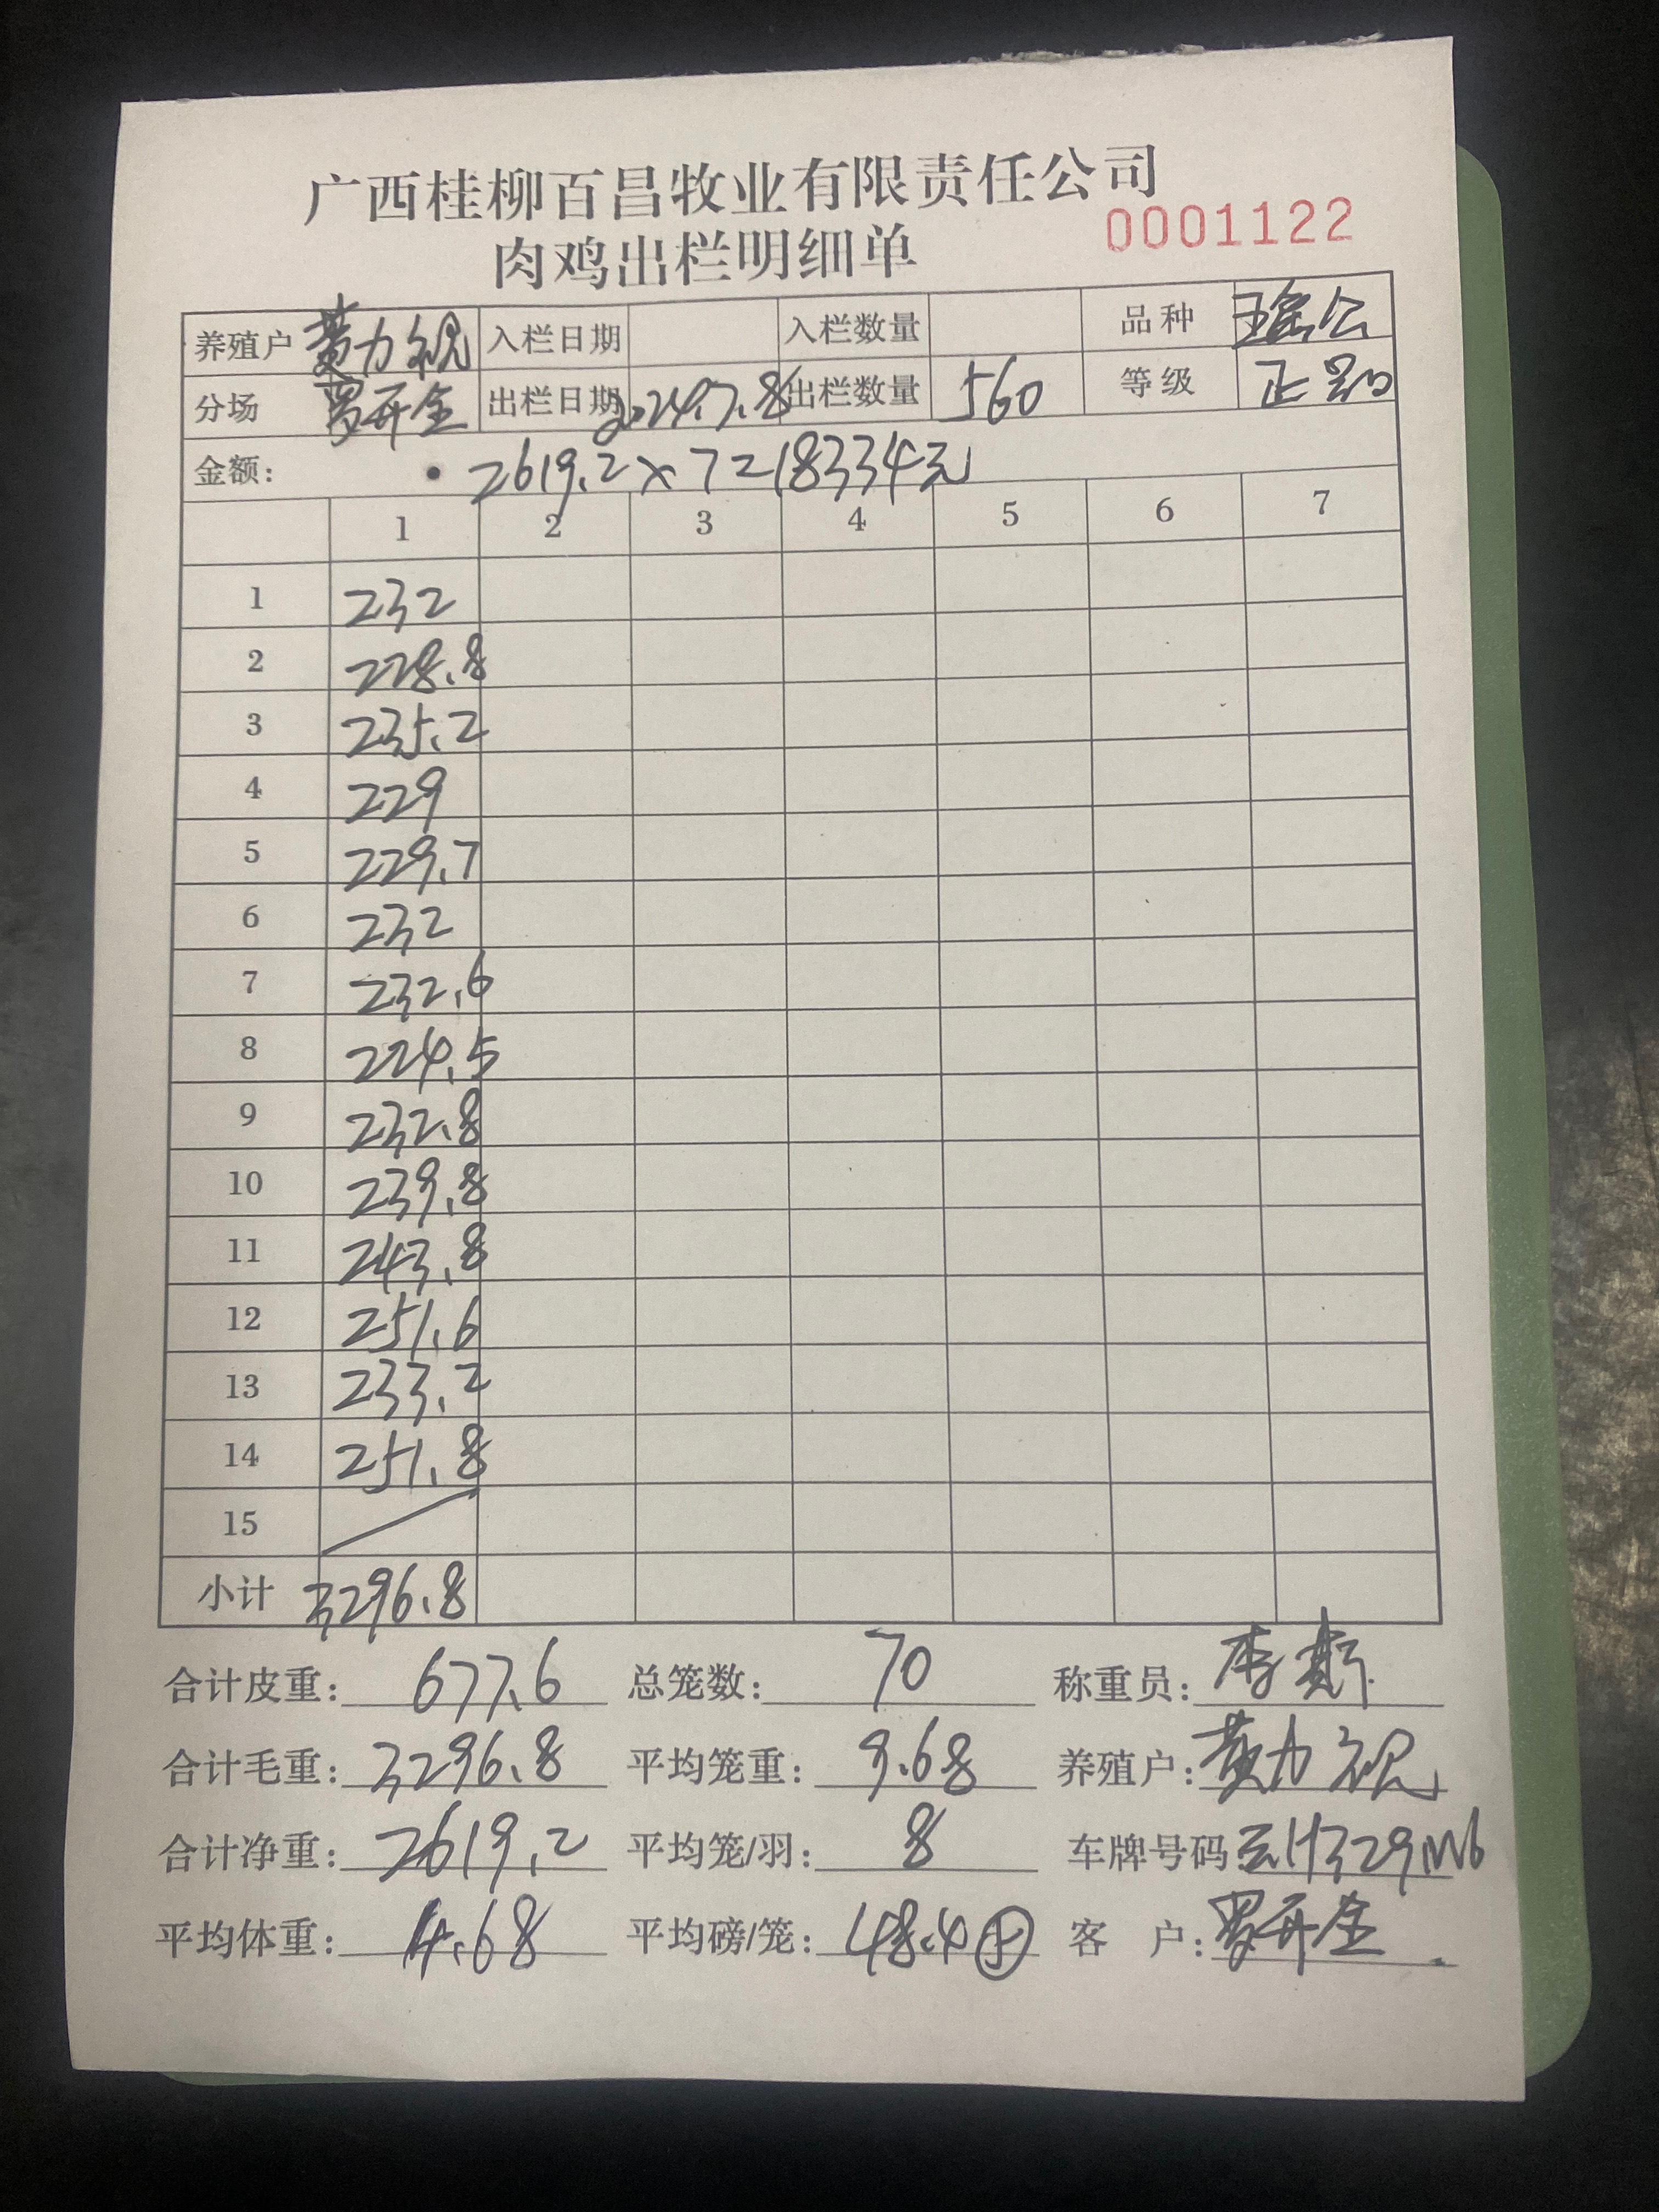 广西桂柳百昌牧业有限责任公司
肉鸡出栏明细单 0001122
养殖户 黄力祝 入栏日期 入栏数量 品种 瑶公
分场 罗开金 出栏日期 2024.7.8 出栏数量 560 等级 正品
金额: 2619.2×7=18334元
1 2 3 4 5 6 7
1 232
2 228.8
3 235.2
4 229
5 229.7
6 232
7 232.6
8 224.5
9 232.8
10 239.8
11 243.8
12 251.6
13 233.2
14 251.8
15
小计 3296.8
合计皮重: 677.6 总笼数: 70 称重员: 李
合计毛重: 3296.8 平均笼重: 9.68 养殖户: 黄力祝
合计净重: 2619.2 平均笼/羽: 8 车牌号码 云H329M6
平均体重: 4.68 平均磅/笼: 48.4 客 户: 罗开金